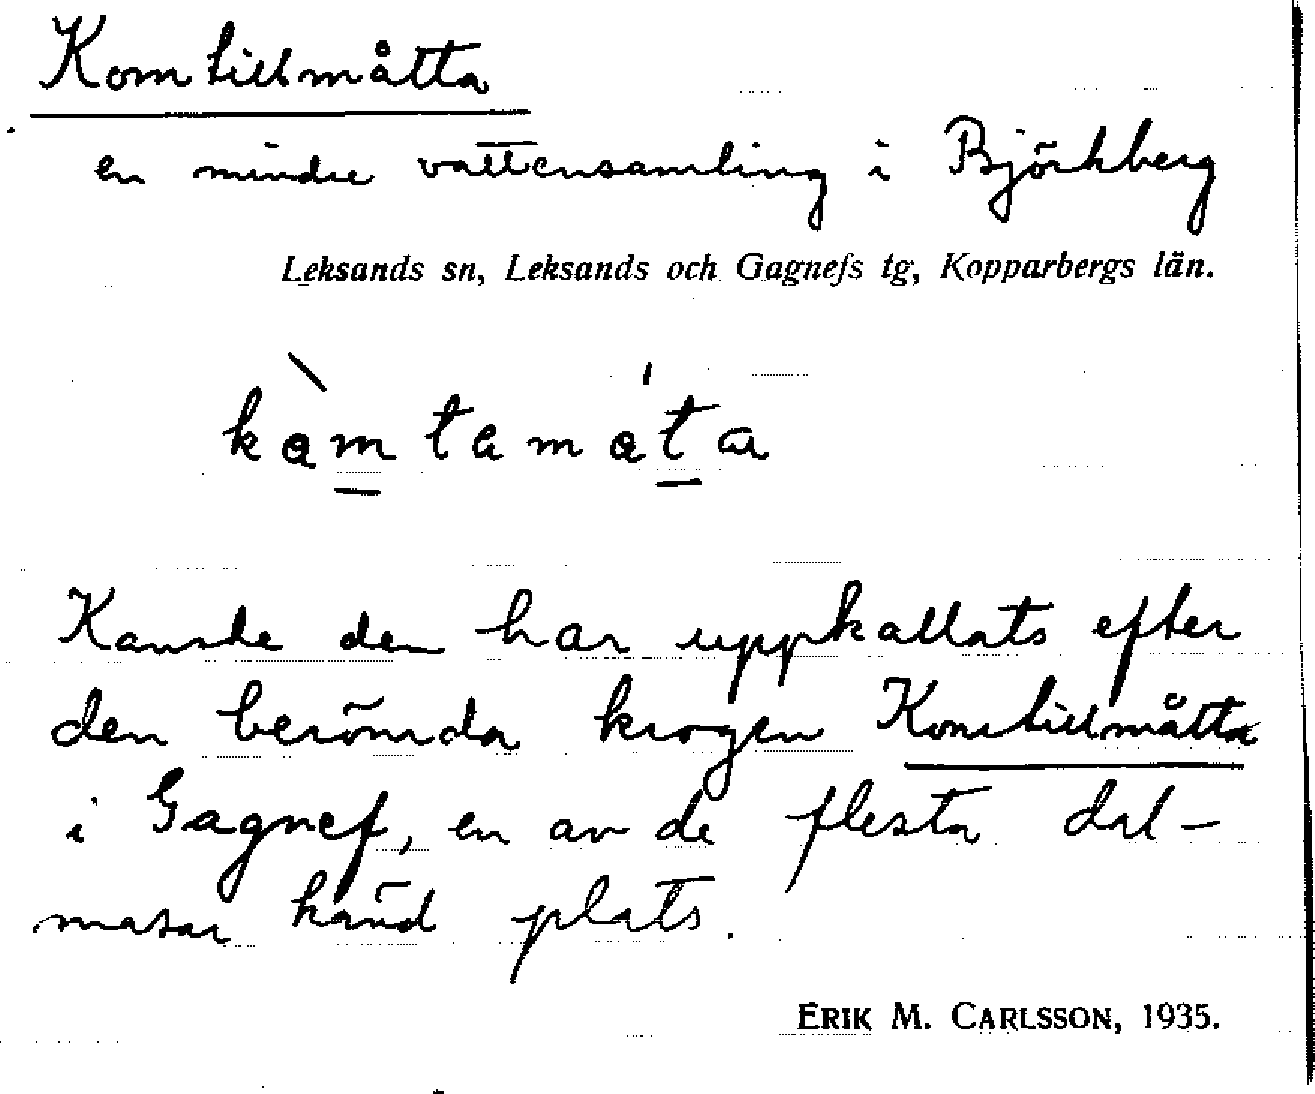 Komtillmåtta
en mindre vattensamling i Björkberg
Leksands sn, Leksands och Gagnefs tg, Kopparbergs län.
kàmtamáta
Kanske den har uppkallats efter
den berömda krogen Komtillmåtta
i Gagnef, en av de flesta dal-
masar känd plats.
ERIK M. CARLSSON, 1935.